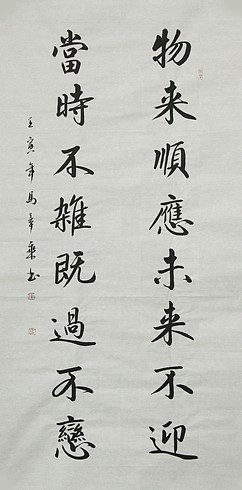 物来順應未来不迎
當時不雜既過不戀
壬寅年馬幸樂书